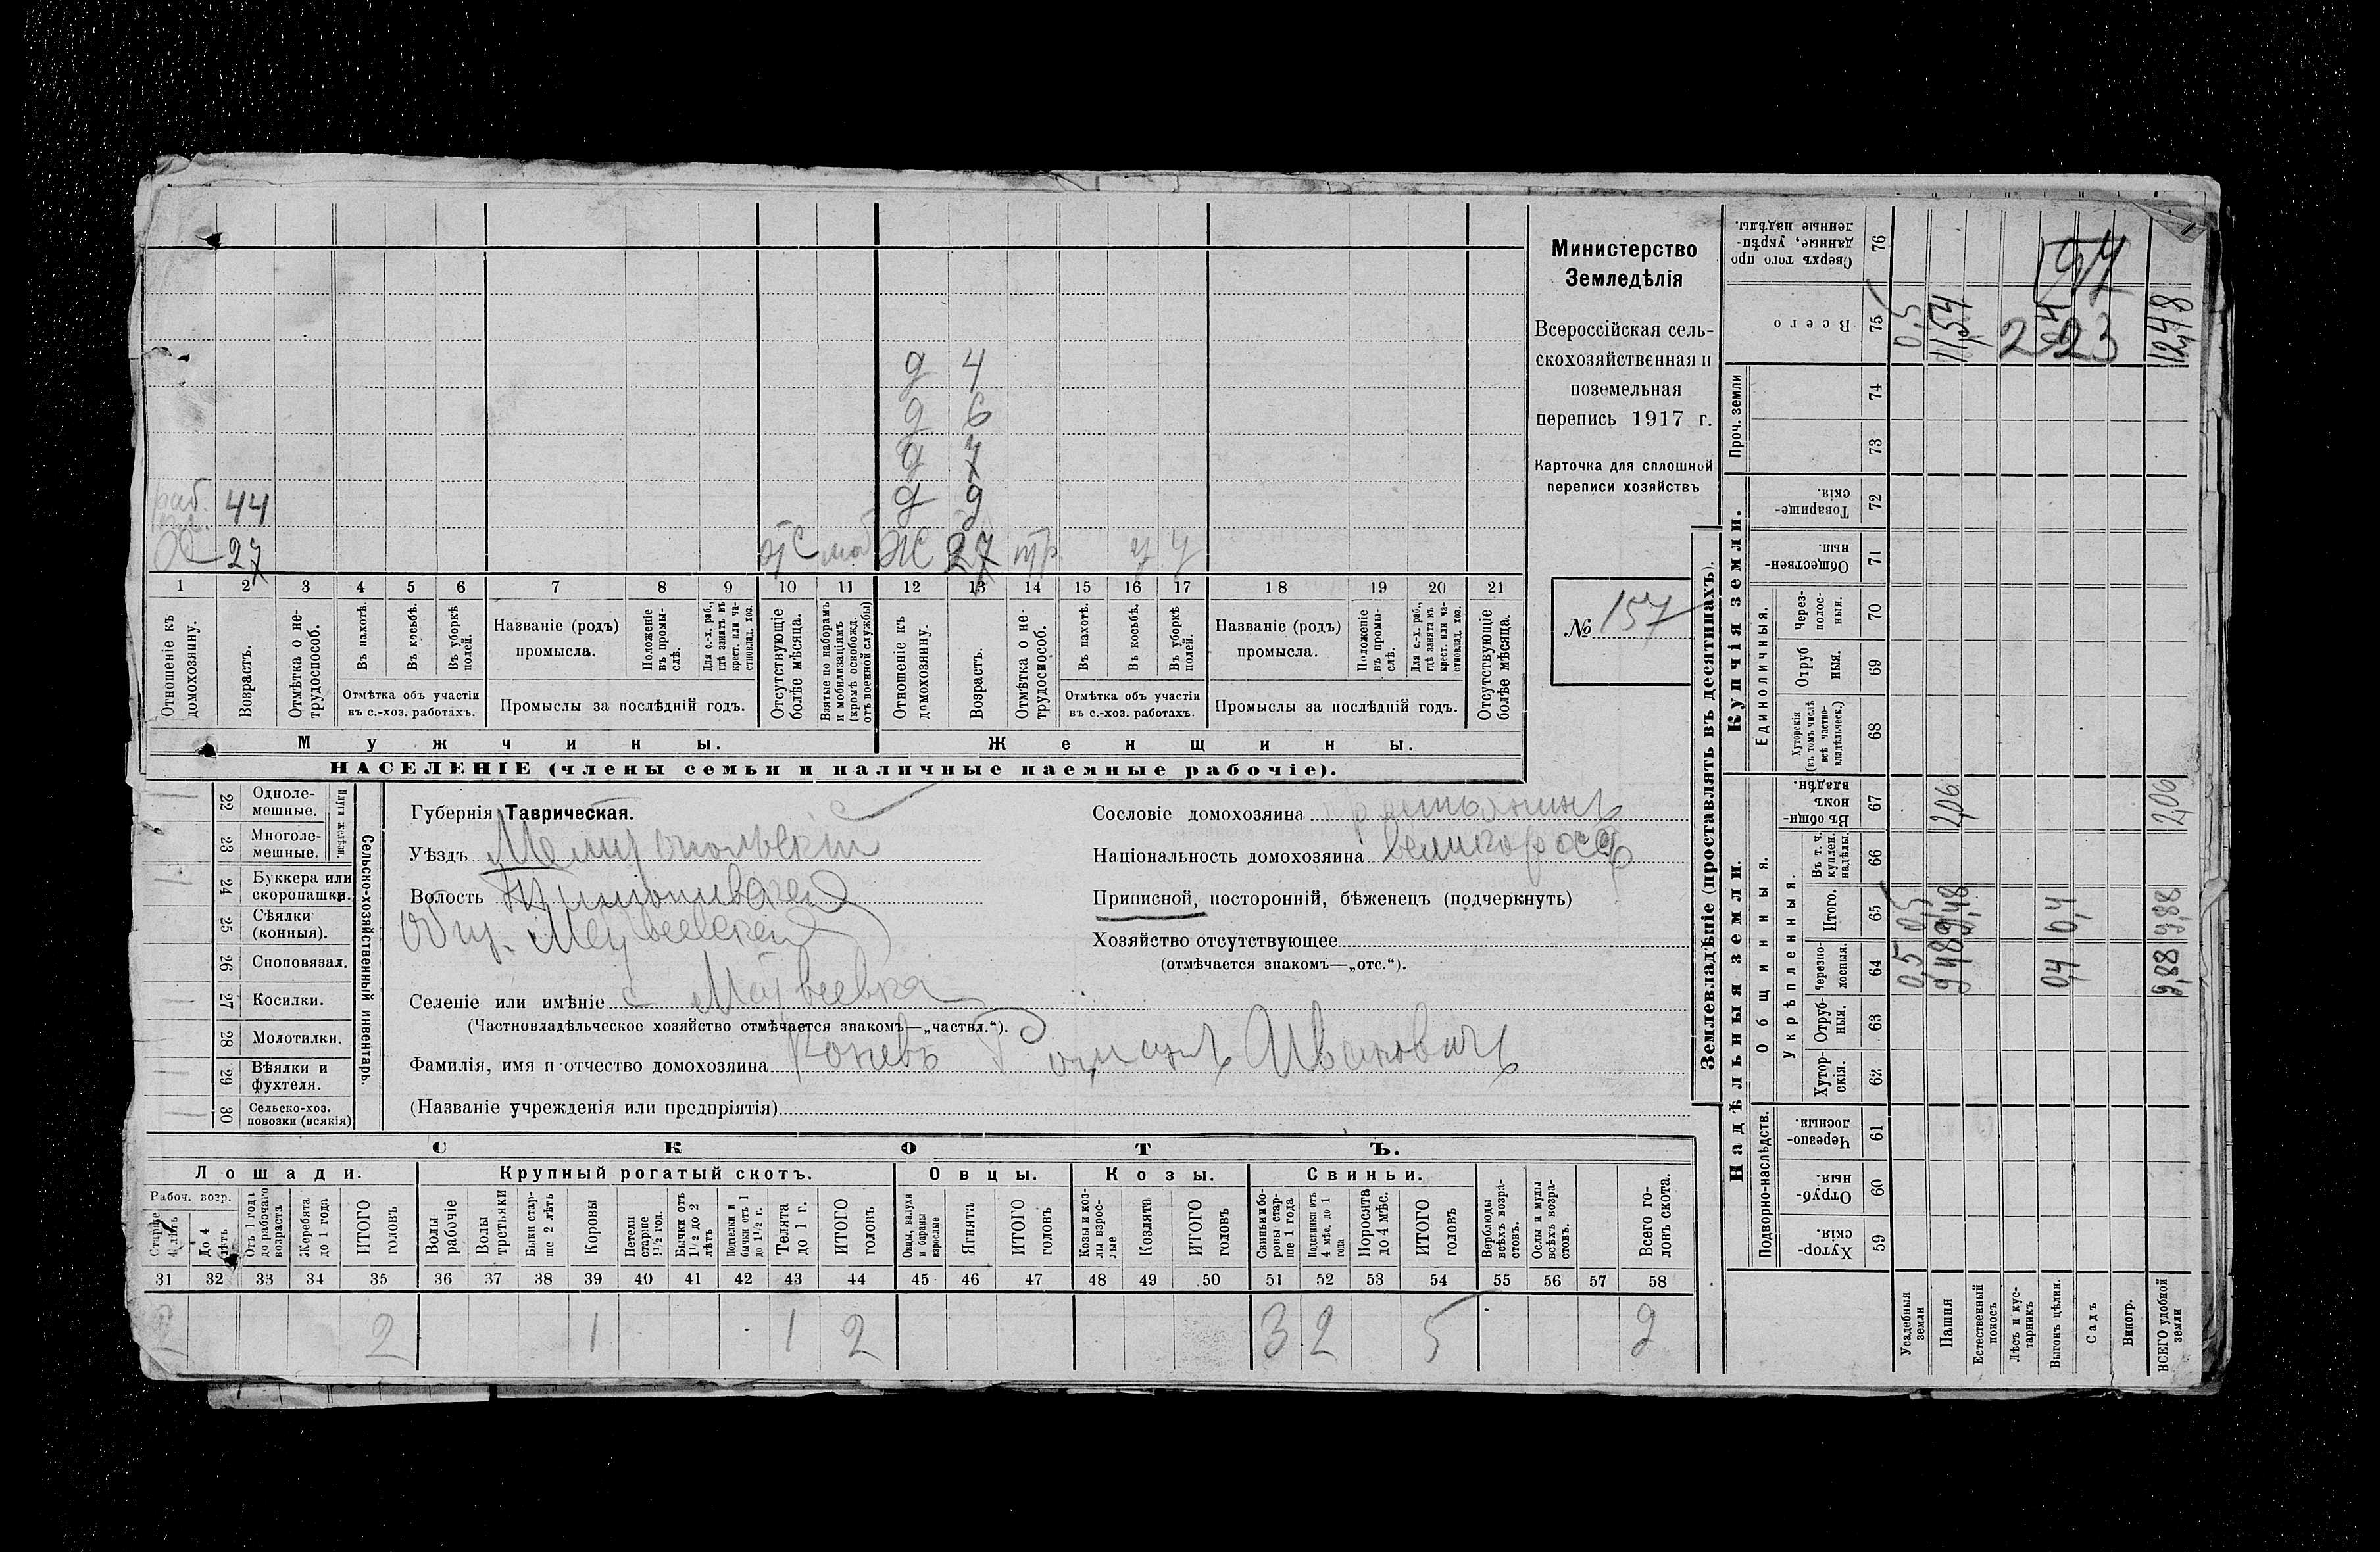 Министерство
Земледѣлія
Всероссійская сель-
скохозяйственная и
поземельная
перепись 1917 г.
Карточка для сплошной
переписи хозяйствъ
№ 157
д 4
д 6
д 7
раб. 44
д 9
Х 27 отс моб Ж 27 тр. у у
1 2 3 4 5 6 7 8 9 10 11 12 13 14 15 16 17 18 19 20 21
Отношеніе къ домохозяину.
Возрастъ.
Отмѣтка о не-трудоспособ.
Въ пахотѣ.
Въ косьбѣ.
Въ уборкѣ полей.
Отмѣтка объ участіи
въ с.-хоз. работахъ.
Названіе (родъ)
промысла.
Положеніе въ промы-слѣ.
Для с.-х. раб., гдѣ занятъ въ крест. или ча-стновлад. хоз.
Промыслы за послѣдній годъ.
Отсутствующіе болѣе мѣсяца.
Взятые по наборамъ и мобилизаціямъ (кромѣ освобожд. отъ военной службы)
Отношеніе къ домохозяину.
Возрастъ.
Отмѣтка о не-трудоспособ.
Въ пахотѣ.
Въ косьбѣ.
Въ уборкѣ полей.
Отмѣтка объ участіи
въ с.-хоз. работахъ.
Названіе (родъ)
промысла.
Положеніе въ промы-слѣ.
Для с.-х. раб., гдѣ занята въ крест. или ча-стновлад. хоз.
Промыслы за послѣдній годъ.
Отсутствующіе болѣе мѣсяца.
Мужчины. Женщины.
НАСЕЛЕНІЕ (члены семьи и наличные наемные рабочіе).
Сельско-хозяйственный инвентарь.
Плуги желѣзн.
22 Одноле-мешные.
23 Многоле-мешные.
24 Буккера или скоропашки.
25 Сѣялки (конныя).
26 Сноповязал.
27 Косилки.
28 Молотилки.
29 Вѣялки и фухтеля.
30 Сельско-хоз. повозки (всякія)
Губернія Таврическая.
Уѣздъ Мелитопольскій
Волость
Общ. Матвеевское
Селеніе или имѣніе с Матвеевка
(Частновладѣльческое хозяйство отмѣчается знакомъ—„частвл.“).
Фамилія, имя и отчество домохозяина Коневъ Романъ Ивановичъ
(Названіе учрежденія или предпріятія)
Сословіе домохозяина крестьянинъ
Національность домохозяина великоросс
Приписной, посторонній, бѣженецъ (подчеркнуть)
Хозяйство отсутствующее
(отмѣчается знакомъ—„отс.“).
СКОТЪ.
Лошади. Крупный рогатый скотъ. Овцы. Козы. Свиньи.
Рабоч. возр.
Старше 4 лѣтъ
До 4 лѣтъ
Отъ 1 года до рабочаго возраста
Жеребята до 1 года
ИТОГО головъ
Волы рабочіе
Волы третьяки
Быки стар-ше 2 лѣтъ
Коровы
Нетели старше 1½ год.
Бычки отъ 1½ до 2 лѣтъ
Подтелки и бычки отъ 1 до 1½ г.
Телята до 1 г.
ИТОГО головъ
Овцы, валухи и бараны взрослые
Ягнята
ИТОГО головъ
Козы и коз-лы взрос-лые
Козлята
ИТОГО головъ
Свиньи и бо-ровы стар-ше 1 года
Подсвинки отъ 4 мѣс. до 1 года
Поросята до 4 мѣс.
ИТОГО головъ
Верблюды всѣхъ возра-стовъ.
Ослы и мулы всѣхъ возра-стовъ.
Всего го-ловъ скота.
31 32 33 34 35 36 37 38 39 40 41 42 43 44 45 46 47 48 49 50 51 52 53 54 55 56 57 58
2 2 1 1 2 3 2 5 9
Землевладѣніе (проставлять въ десятинахъ).
Надѣльныя земли. Купчія земли. Проч. земли
Подворно-наслѣдств. Общинныя. Единоличныя.
Укрѣпленныя.
Хутор-скія. 59
Отруб-ныя. 60
Черезпо-лосныя. 61
Хутор-скія. 62
Отруб-ныя. 63
Черезпо-лосныя. 64
Итого. 65
Въ т. ч. куплен. надѣлы. 66
Въ общин-номъ владѣн. 67
Хуторскія (въ томъ числѣ всѣ частно-владѣльческ.) 68
Отруб ныя. 69
Через-полос-ныя. 70
Обществен-ныя. 71
Товарище-скія. 72
73
74
Всего 75
Сверхъ того про данные, укрѣп-ленные надѣлы. 76
Усадебныя земли 0,5 0,5 0,5
Пашня 9,48 9,48 2,06 11,54
Естественный покосъ
Лѣсъ и кус-тарникъ
Выгонъ цѣлин. 0,4 0,4
Садъ
Виногр.
ВСЕГО удобной земли 9,88 9,88 2,06 12,48